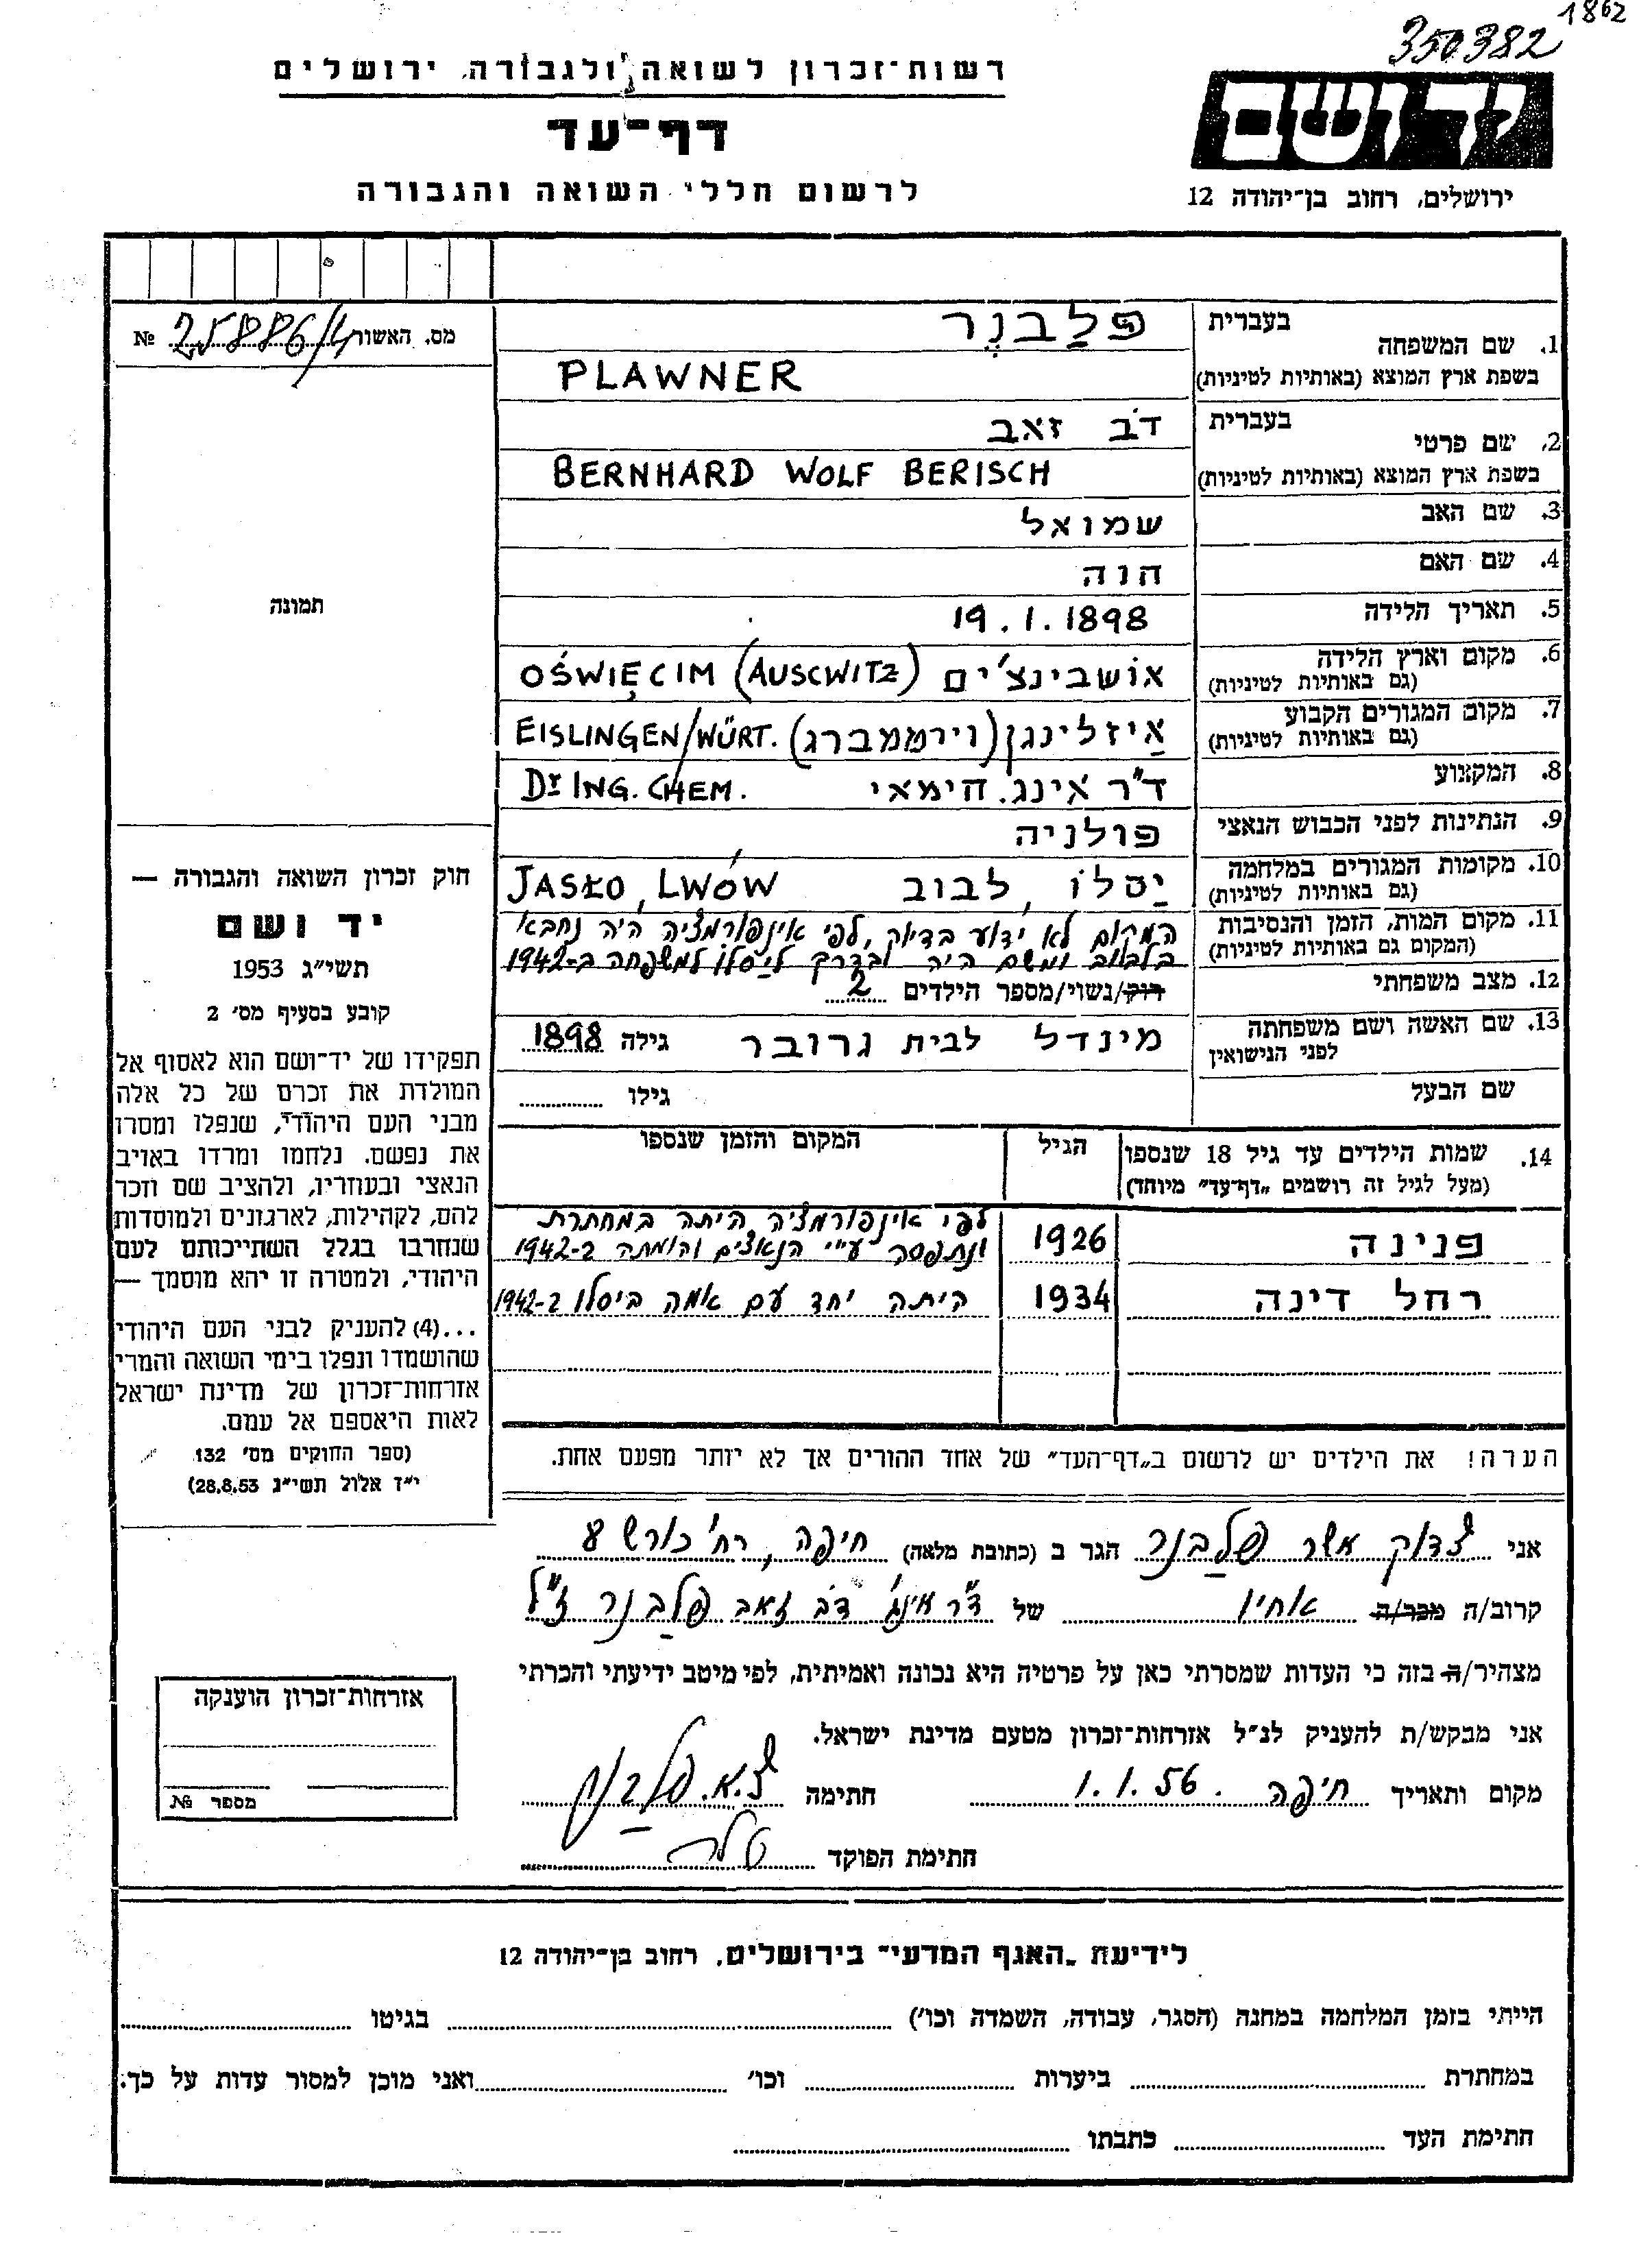 1862
350382
רשות־זכרון לשואה ולגבורה, ירושלים
דף־עד
לרשום חללי השואה והגבורה
יד ושם
ירושלים, רחוב בן־יהודה 12
מס. האשור 25886/4 №
1. שם המשפחה
בעברית פלבנר
בשפת ארץ המוצא (באותיות לטיניות) PLAWNER
2. שם פרטי
בעברית דב זאב
בשפת ארץ המוצא (באותיות לטיניות) BERNHARD WOLF BERISCH
3. שם האב שמואל
4. שם האם חוה
5. תאריך הלידה 19.1.1898
6. מקום וארץ הלידה
(גם באותיות לטיניות) אושבינצ'ים OŚWIĘCIM (AUSCWITZ)
7. מקום המגורים הקבוע
(גם באותיות לטיניות) איזלינגן (וירטמברג) EISLINGEN/WÜRT.
8. המקצוע ד"ר אינג. חימאי Dr ING. CHEM.
9. הנתינות לפני הכבוש הנאצי פולניה
10. מקומות המגורים במלחמה
(גם באותיות לטיניות) יסלו, לבוב JASŁO, LWÓW
11. מקום המות, הזמן והנסיבות
(המקום גם באותיות לטיניות)
המקום לא ידוע בדיוק, לפי אינפורמציה היה נחבא
בלבוב ומשם היה בדרך ליסלו למשפחה ב-1942
12. מצב משפחתי רוק/נשוי/מספר הילדים 2
13. שם האשה ושם משפחתה
לפני הנישואין מינדל לבית גרובר גילה 1898
שם הבעל גילו
14. שמות הילדים עד גיל 18 שנספו הגיל המקום והזמן שנספו
(מעל לגיל זה רושמים „דף־עד" מיוחד)
פנינה 1926 לפי אינפורמציה היתה במחתרת
ונתפסה ע"י הנאצים והומתה ב-1942
רחל דינה 1934 היתה יחד עם אמה ביסלו ב-1942
הערה! את הילדים יש לרשום ב„דף־העד" של אחד ההורים אך לא יותר מפעם אחת.
תמונה
חוק זכרון השואה והגבורה —
יד ושם
תשי"ג 1953
קובע בסעיף מס' 2
תפקידו של יד־ושם הוא לאסוף אל
המולדת את זכרם של כל אלה
מבני העם היהודי, שנפלו ומסרו
את נפשם. נלחמו ומרדו באויב
הנאצי ובעוזריו, ולהציב שם וזכר
להם, לקהילות, לארגונים ולמוסדות
שנחרבו בגלל השתייכותם לעם
היהודי, ולמטרה זו יהא מוסמך —
...(4) להעניק לבני העם היהודי
שהושמדו ונפלו בימי השואה והמרי
אזרחות־זכרון של מדינת ישראל
לאות היאספם אל עמם.
(ספר החוקים מס' 132
י"ז אלול תשי"ג 28.8.53)
אני צדוק אשר פלבנר הגר ב (כתובת מלאה) חיפה, רח' כורש 8
קרוב/ה מכר/ה אחיו של ד"ר אינג' דב זאב פלבנר ז"ל
מצהיר/ה בזה כי העדות שמסרתי כאן על פרטיה היא נכונה ואמיתית, לפי מיטב ידיעתי והכרתי
אני מבקש/ת להעניק לנ"ל אזרחות־זכרון מטעם מדינת ישראל.
מקום ותאריך חיפה. 1.1.56 חתימה צ.א. פלבנר
חתימת הפוקד
אזרחות־זכרון הוענקה
מספר №
לידיעת „האגף המדעי" בירושלים, רחוב בן־יהודה 12
הייתי בזמן המלחמה במחנה (הסגר, עבודה, השמדה וכו') בגיטו
במחתרת ביערות וכו' ואני מוכן למסור עדות על כך.
חתימת העד כתבתו